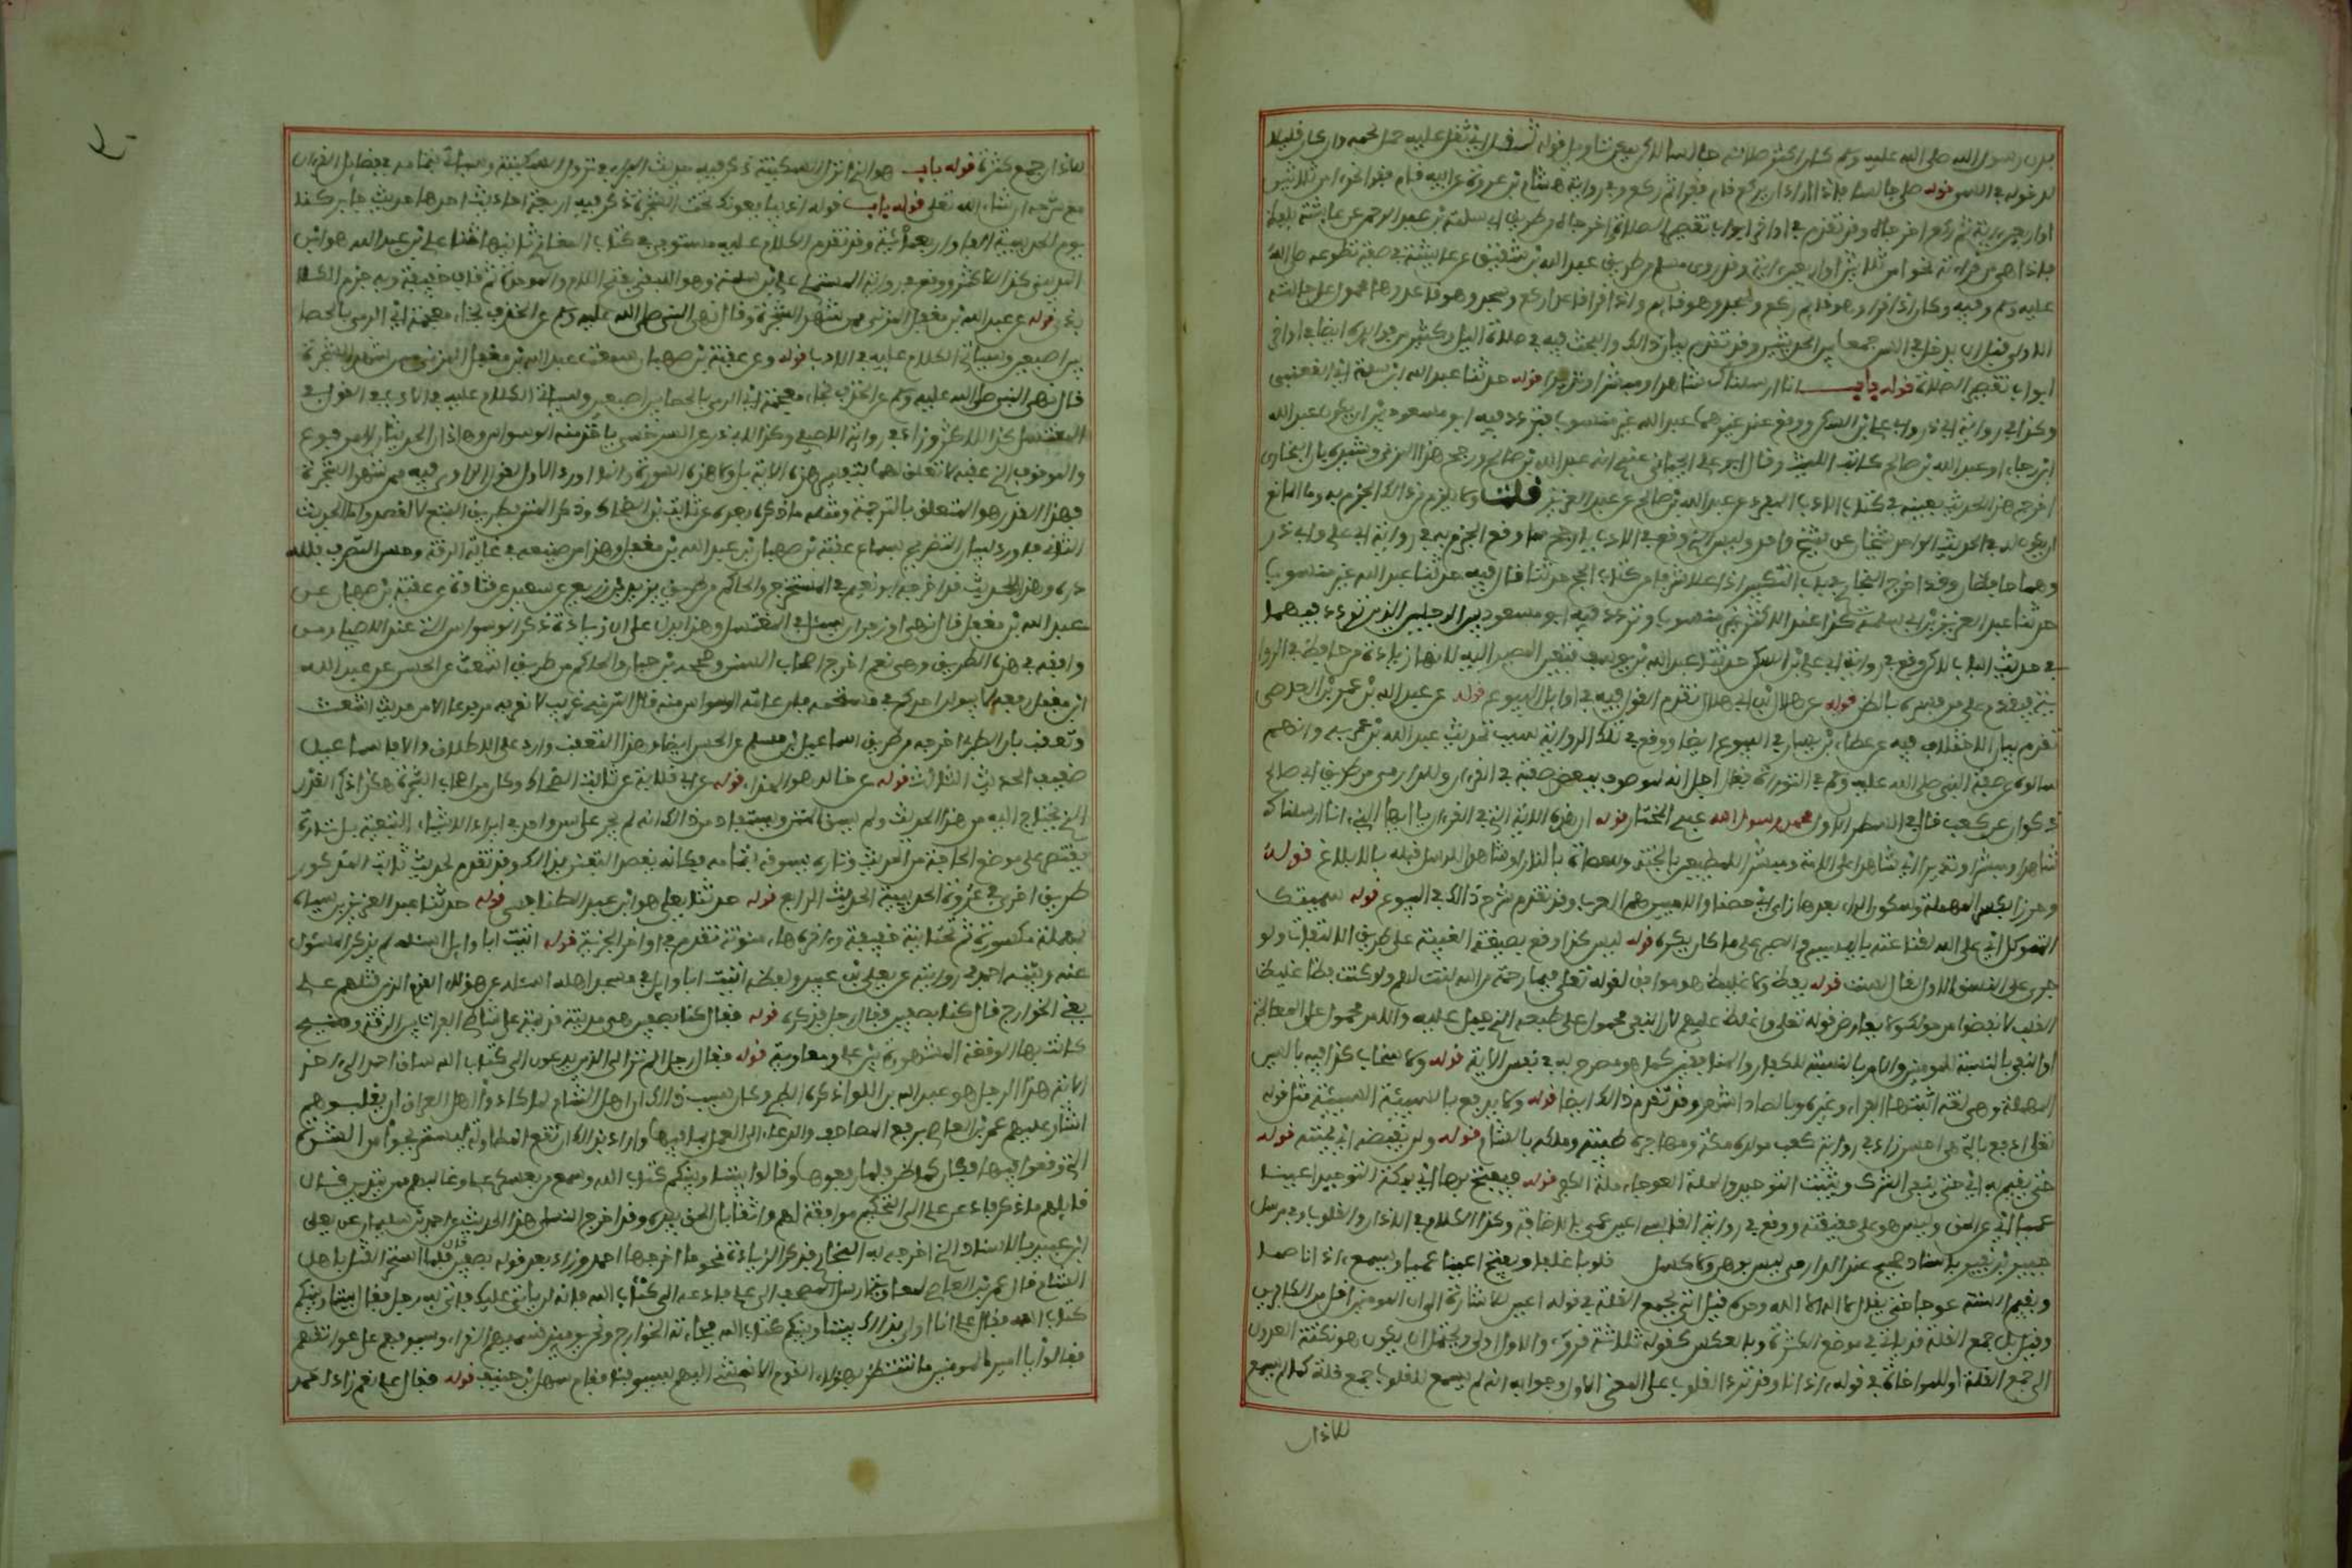 بدن رسول الله صلى الله عليه وسلم كان اكثر صلاته جالسا لاكن يمكن تاويل قوله ثقل اي ثقل عليه حمل لحمه وان كان قليلا
لدخوله في السن قوله صلى جالسا فاذا اراد ان يركع قام فقرا ثم ركع وفي رواية هشام بن عروة عن ابيه قام فقرا نحوا من ثلاثين
او اربعين ءاية ثم ركع اخرجاه وقد تقدم في اواخر ابواب تقصير الصلاة واخرجاه من طريق ابي سلمة بن عبد الرحمن عن عائشة بلفظ
فاذا بقي من قراءته نحوا من ثلاثين او اربعين ءاية وقد روى مسلم من طريق عبد الله بن شقيق عن عائشة في صفة تطوعه صلى الله
عليه وسلم وفيه وكان اذا قرا وهو قايم ركع وسجد وهو قايم واذا قرا قاعدا ركع وسجد وهو قاعد وهذا محمول على حالته
الاولى قبل ان يدخل في السن جمعا بين الحديثين وقد تقدم بيان ذالك والبحث فيه في صلاة اليل وكثير من فوايده ايضا في اواخر
ابواب تقصير الصلاة قوله باب انا ارسلناك شاهدا ومبشرا ونذيرا قوله حدثنا عبد الله ابن مسلمة اي القعنبي
وكذا في رواية ابي ذر وابي علي ابن السكن ووقع عند غيرهما عبد الله غير منسوب فتردد فيه ابو مسعود بين ان يكون عبد الله
ابن رجاء او عبد الله بن صالح كاتب الليث وقال ابو علي الجياني عندي انه عبد الله بن صالح ورجح هذا المزي وشيده بان البخاري
اخرج هذا الحديث بعينه في كتاب الادب المفرد عن عبد الله بن صالح عن عبد العزيز قلت ولا يلزم من ذالك الجزم به وما المانع
ان يكون له في الحديث الواحد شيخان عن شيخ واحد وليس الذي وقع في الادب بارجح مما وقع الجزم به في رواية ابي علي وابي ذر
وهما حافظان وقد اخرج البخاري في باب التكبير اذا علا شرفا من كتاب الحج حديثا قال فيه حدثنا عبد الله غير منسوب
حدثنا عبد العزيز بن ابي سلمة كذا عند الاكثر غير منسوب وتردد فيه ابو مسعود بين الرجلين الذين تردد فيهما
في حديث الباب لاكن وقع في رواية ابي علي بن السكن حدثنا عبد الله بن يوسف فتعين المصير اليه لانها زيادة من حافظ في الروا
ية فتقدم على من فسره بالظن قوله عن هلال بن ابي هلال تقدم القول فيه في اوايل البيوع قوله عن عبد الله بن عمرو بن العاصي
تقدم بيان الاختلاف فيه على عطاء بن يسار في البيوع ايضا ووقع في تلك الرواية سبب تحديث عبد الله بن عمرو به وانهم
سالوه عن صفة النبي صلى الله عليه وسلم في التوراة فقال اجل انه لموصوف ببعض صفته في القرءان وللدارمي من طريق ابي صالح
ذكوان عن كعب قال في السطر الاول محمد رسول الله عبدي المختار قوله ان هذه الاية التي في القرءان يا ايها النبي انا ارسلناك
شاهدا ومبشرا ونذيرا اي شاهدا على الامة ومبشرا للمطيعين بالجنة وللعصاة بالنار او شاهدا للرسل قبله بالابلاغ قوله
وحرزا بكسر المهملة وسكون الراء بعدها زاي اي حصنا والاميين هم العرب وقد تقدم شرح ذالك في البيوع قوله سميتك
المتوكل اي على الله لقناعته باليسير والصبر على ما كان يكره قوله ليس كذا وقع بصيغة الغيبة على طريق الالتفات ولو
جرى على النسق الاول لقال لست قوله بفظ ولا غليظ هو موافق لقوله تعلى فبما رحمة من الله لنت لهم ولو كنت فظا غليظ
القلب لانفضوا من حولك ولا يعارض قوله تعلى واغلظ عليهم لان النفي محمول على طبعه الذي جبل عليه والامر محمول على المعالجة
او النفي بالنسبة للمومنين والامر بالنسبة للكفار والمنافقين كما هو مصرح به في نفس الاية قوله ولا سخاب كذا فيه بالسين
المهملة وهي لغة اثبتها الفراء وغيره وبالصاد اشهر وقد تقدم ذالك ايضا قوله ولا يدفع بالسيئة السيئة مثل قوله
تعلى ادفع بالتي هي احسن زاد في رواية كعب مولده بمكة ومهاجره طيبة وملكه بالشام قوله ولن يقبضه اي يميته قوله
حتى يقيم به اي حتى ينفي الشرك ويثبت التوحيد والملة العوجاء ملة الكفر قوله فيفتح بها اي بكلمة التوحيد اعينا
عميا اي عن الحق وليس هو على حقيقته ووقع في رواية القابسي اعين عمي بالاضافة وكذا الكلام في الاذان والقلوب وفي مرسل
جبير بن نفير باسناد صحيح عند الدارمي ليس بوهن ولا كسل قلوبا غلفا ويفتح اعينا عميا ويسمع ءاذانا صما
ويقيم السنة عوجا حتى يقال لا اله الا الله وحده قيل اتى بجمع القلة في قوله اعين للاشارة الى ان المومنين اقل من الكافرين
وقيل بل جمع القلة قد ياتي في موضع الكثرة وبالعكس كقوله ثلاثة قروء والاول اولى ويحتمل ان يكون هو نكتة العدول
الى جمع القلة او للمواخاة في قوله ءاذانا وقد ترد القلوب على المعنى الاول وجوابه انه لم يسمع للقلوب جمع قلة كما لم يسمع
للاذان
للاذان جمع كثرة قوله باب هو الذي انزل السكينة ذكر فيه حديث البراء في نزول السكينة وسياتي بتمامه في فضايل القرءان
مع شرحه ان شاء الله تعلى قوله باب قوله اذ يبايعونك تحت الشجرة ذكر فيه اربعة احاديث احدها حديث جابر كنا
يوم الحديبية الفا واربعمائة وقد تقدم الكلام عليه مستوفى في كتاب المغازي ثانيها حديث علي بن عبد الله هو ابن
المديني كذا للاكثر ووقع في رواية المستملي علي بن سلمة وهو اللبقي بفتح اللام والموحدة ثم قاف خفيفة وبه جزم الكلا
باذي قوله عن عبد الله بن مغفل المزني ممن شهد الشجرة وقال نهى النبي صلى الله عليه وسلم عن الخذف بخاء معجمة اي الرمي بالحصا
بين اصبعين وسياتي الكلام عليه في الادب قوله وعن عقبة بن صهبان سمعت عبد الله بن مغفل المزني ممن شهد الشجرة
قال نهى النبي صلى الله عليه وسلم عن الخذف بخاء معجمة اي الرمي بالحصا بين اصبعين وسياتي الكلام عليه في الادب في البول في
المغتسل كذا للاكثر وزاد في رواية الاصيلي وكذا لابي ذر عن السرخسي ياخذ منه الوسواس وهاذان الحديثان المرفوع
والموقوف الذي عقبه لا تعلق لهما بتفسير هذه الاية بل ولا هذه السورة وانما اورد الاول لقول الراوي فيه ممن شهد الشجرة
فهذا القدر هو المتعلق بالترجمة ومثله ما ذكره بعده عن ثابت بن الضحاك وذكر المتن بطريق التبع لا القصد واما الحديث
الثاني فاورده لبيان التصريح بسماع عقبة بن صهبان من عبد الله بن مغفل وهذا من صنيعه في غاية الدقة وحسن التصرف فلله
دره وهذا الحديث قد اخرجه ابو نعيم في المستخرج والحاكم من طريق يزيد بن زريع عن سعيد عن قتادة عن عقبة بن صهبان عن
عبد الله بن مغفل قال نهى او زجر ان يبال في المغتسل وهذا يدل على ان زيادة ذكر الوسواس التي عند الاصيلي ومن
وافقه في هذه الطريق وهم نعم اخرج اصحاب السنن وصححه ابن حبان والحاكم من طريق اشعث عن الحسن عن عبد الله
ابن مغفل رفعه لا يبولن احدكم في مستحمه فان عامة الوسواس منه قال الترمذي غريب لا نعرفه مرفوعا الا من حديث اشعث
وتعقب بان الطبري اخرجه من طريق اسماعيل بن مسلم عن الحسن ايضا وهذا التعقب وارد على الاطلاق والا فاسماعيل
ضعيف الحديث الثالث قوله عن خالد هو الحذاء قوله عن ابي قلابة عن ثابت بن الضحاك وكان من اصحاب الشجرة هكذا ذكر القدر
الذي يحتاج اليه من هذا الحديث ولم يسق المتن ويستفاد من ذالك انه لم يجر على نسق واحد في ايراد الاشياء التبعية بل تارة
يقتصر على موضع الحاجة من الحديث وتارة يسوقه بتمامه فكانه يقصد التفنن بذالك وقد تقدم لحديث ثابت المذكور
طريق اخرى في غزوة الحديبية الحديث الرابع قوله حدثنا يعلى هو ابن عبيد الطنافسي قوله حدثنا عبد العزيز بن سياه
بمهملة مكسورة ثم تحتانية خفيفة وءاخره هاء منونة تقدم في اواخر الجزية قوله اتيت ابا وايل اسئله لم يذكر المسئول
عنه وبينه احمد في روايته عن يعلى بن عبيد ولفظه اتيت ابا وايل في مسجد اهله اسئله عن هؤلاء القوم الذين قتلهم علي
يعني الخوارج قال كنا بصفين فقال رجل فذكره قوله فقال كنا بصفين هي مدينة قديمة على شاطئ الفرات بين الرقة ومنبج
كانت بها الوقعة المشهورة بين علي ومعاوية قوله فقال رجل الم تر الى الذين يدعون الى كتاب الله ساق احمد الى ءاخر
الاية هذا الرجل هو عبد الله بن الكواء ذكره الطبري وكان سبب ذالك ان اهل الشام لما كاد اهل العراق ان يغلبوهم
اشار عليهم عمرو بن العاصي برفع المصاحف والدعاء الى العمل بما فيها واراد بذالك ان تقع المطاولة فيستريحوا من الشدة
التي وقعوا فيها فكان كما ظن فلما رفعوها وقالوا بيننا وبينكم كتاب الله وسمع من بعسكر علي وغالبهم ممن يتدين قال
قايلهم ما ذكر فاذعن علي الى التحكيم موافقة لهم واثقا بان الحق بيده وقد اخرج النسائي هذا الحديث عن احمد بن سليمان عن يعلى
ابن عبيد بالاسناد الذي اخرجه به البخاري فذكر الزيادة نحو ما اخرجها احمد وزاد بعد قوله بصفين فلما استحر القتل باهل
الشام قال عمرو بن العاصي لمعاوية ارسل المصحف الى علي فادعه الى كتاب الله فانه لن يابى عليك فاتى به رجل فقال بيننا وبينكم
كتاب الله فقال علي انا اولى بذالك بيننا وبينكم كتاب الله فجاءته الخوارج ونحن يومئذ نسميهم القراء وسيوفهم على عواتقهم
فقالوا يا امير المومنين ما ننتظر بهؤلاء القوم الا نمشي اليهم بسيوفنا فقام سهل بن حنيف قوله فقال علي نعم زاد احمد